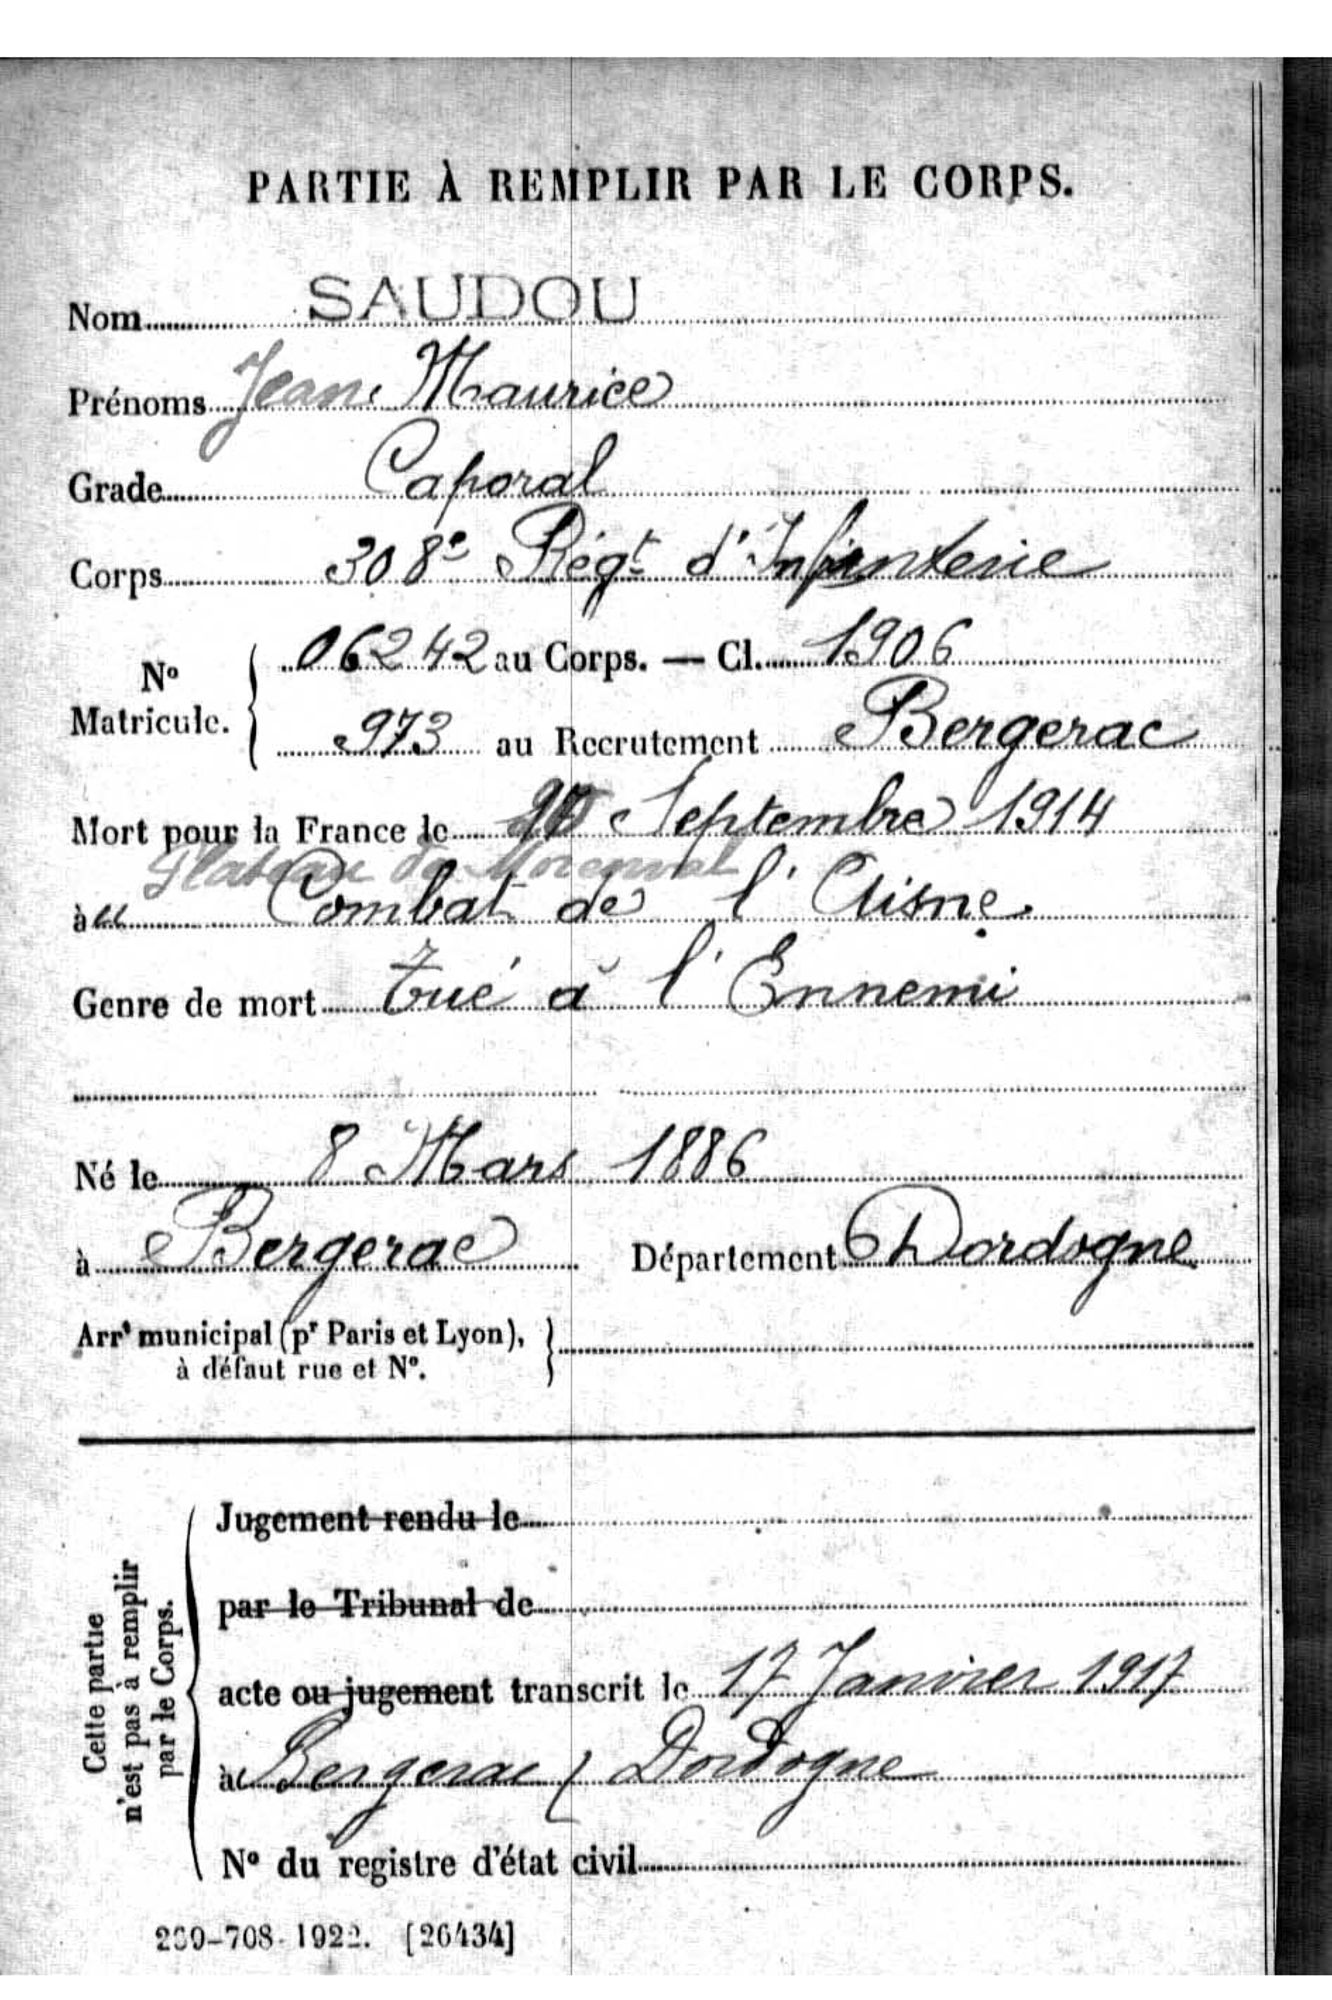 PARTIE À REMPLIR PAR LE CORPS.
Nom SAUDOU
Prénoms Jean Maurice
Grade Caporal
Corps 308e Régt d'Infanterie
No Matricule. 06242 au Corps. — Cl. 1906
973 au Recrutement Bergerac
Mort pour la France le Septembre 1914
Plateau de
à Combat de l'Aisne
Genre de mort tué à l'Ennemi
Né le 8 Mars 1886
à Bergerac Département Dordogne
Arrt municipal (pr Paris et Lyon),
à défaut rue et No.
Cette partie
n'est pas à remplir
par le Corps.
Jugement rendu le
par le Tribunal de
acte ou jugement transcrit le 17 Janvier 1917
à Bergerac / Dordogne
No du registre d'état civil
-708-1922. [26434]